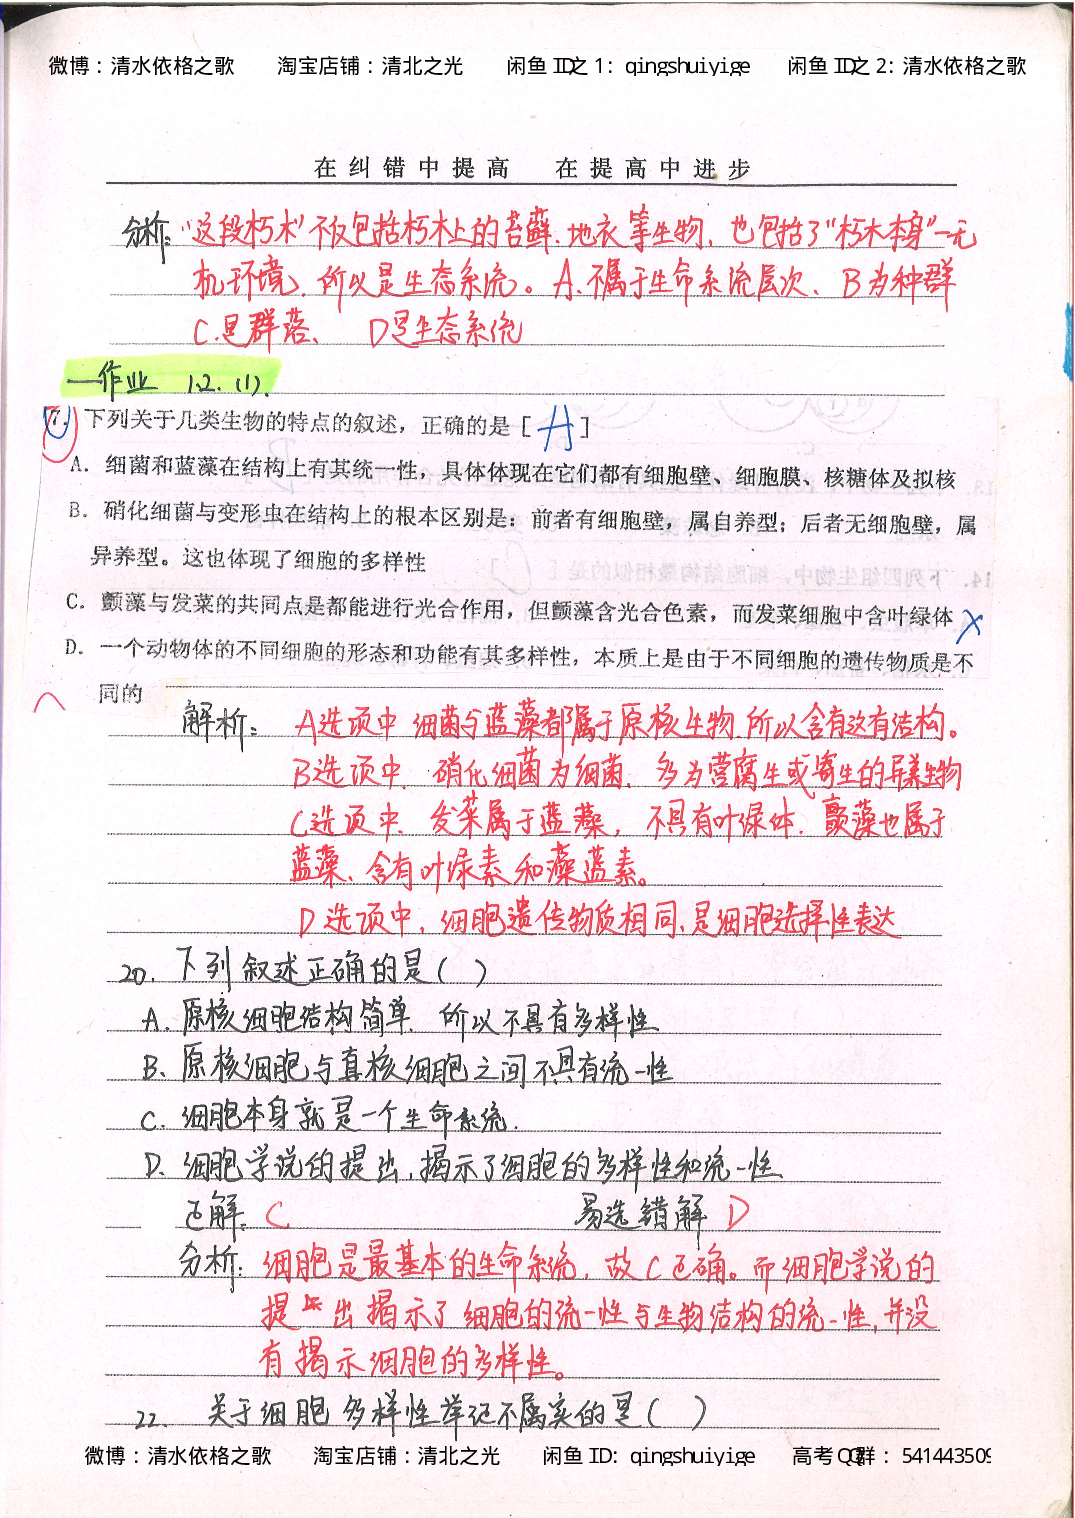 微博：清水依格之歌 淘宝店铺：清北之光 闲鱼ID之1: qingshuiyige 闲鱼ID之2:清水依格之歌
在纠错中提高 在提高中进步
分析："这段朽木"不仅包括朽木上的苔藓、地衣等生物，也包括了"朽木本身"一无
机环境，所以是生态系统。A.不属于生命系统层次、B为种群
C.是群落、 D是生态系统
一作业 1.2.(1).
7. 下列关于几类生物的特点的叙述，正确的是 [ A ]
A. 细菌和蓝藻在结构上有其统一性，具体体现在它们都有细胞壁、细胞膜、核糖体及拟核
B. 硝化细菌与变形虫在结构上的根本区别是：前者有细胞壁，属自养型；后者无细胞壁，属
异养型。这也体现了细胞的多样性
C. 颤藻与发菜的共同点是都能进行光合作用，但颤藻含光合色素，而发菜细胞中含叶绿体 ×
D. 一个动物体的不同细胞的形态和功能有其多样性，本质上是由于不同细胞的遗传物质是不
同的
解析： A选项中 细菌与蓝藻都属于原核生物.所以含有这有结构。
B选项中．硝化细菌为细菌．多为营腐生或寄生的异养生物
C选项中．发菜属于蓝藻，不具有叶绿体．颤藻也属于
蓝藻、含有叶绿素和藻蓝素。
D选项中，细胞遗传物质相同，是细胞选择性表达
20. 下列叙述正确的是( )
A. 原核细胞结构简单．所以不具有多样性
B、原核细胞与真核细胞之间不具有统一性
C. 细胞本身就是一个生命系统．
D. 细胞学说的提出，揭示了细胞的多样性和统一性
正解：C 易选错解 D
分析：细胞是最基本的生命系统，故C正确。而细胞学说的
提出揭示了细胞的统一性与生物结构的统一性，并没
有揭示细胞的多样性。
22. 关于细胞多样性举证不属实的是( )
微博：清水依格之歌 淘宝店铺：清北之光 闲鱼ID: qingshuiyige 高考QQ群：541443509